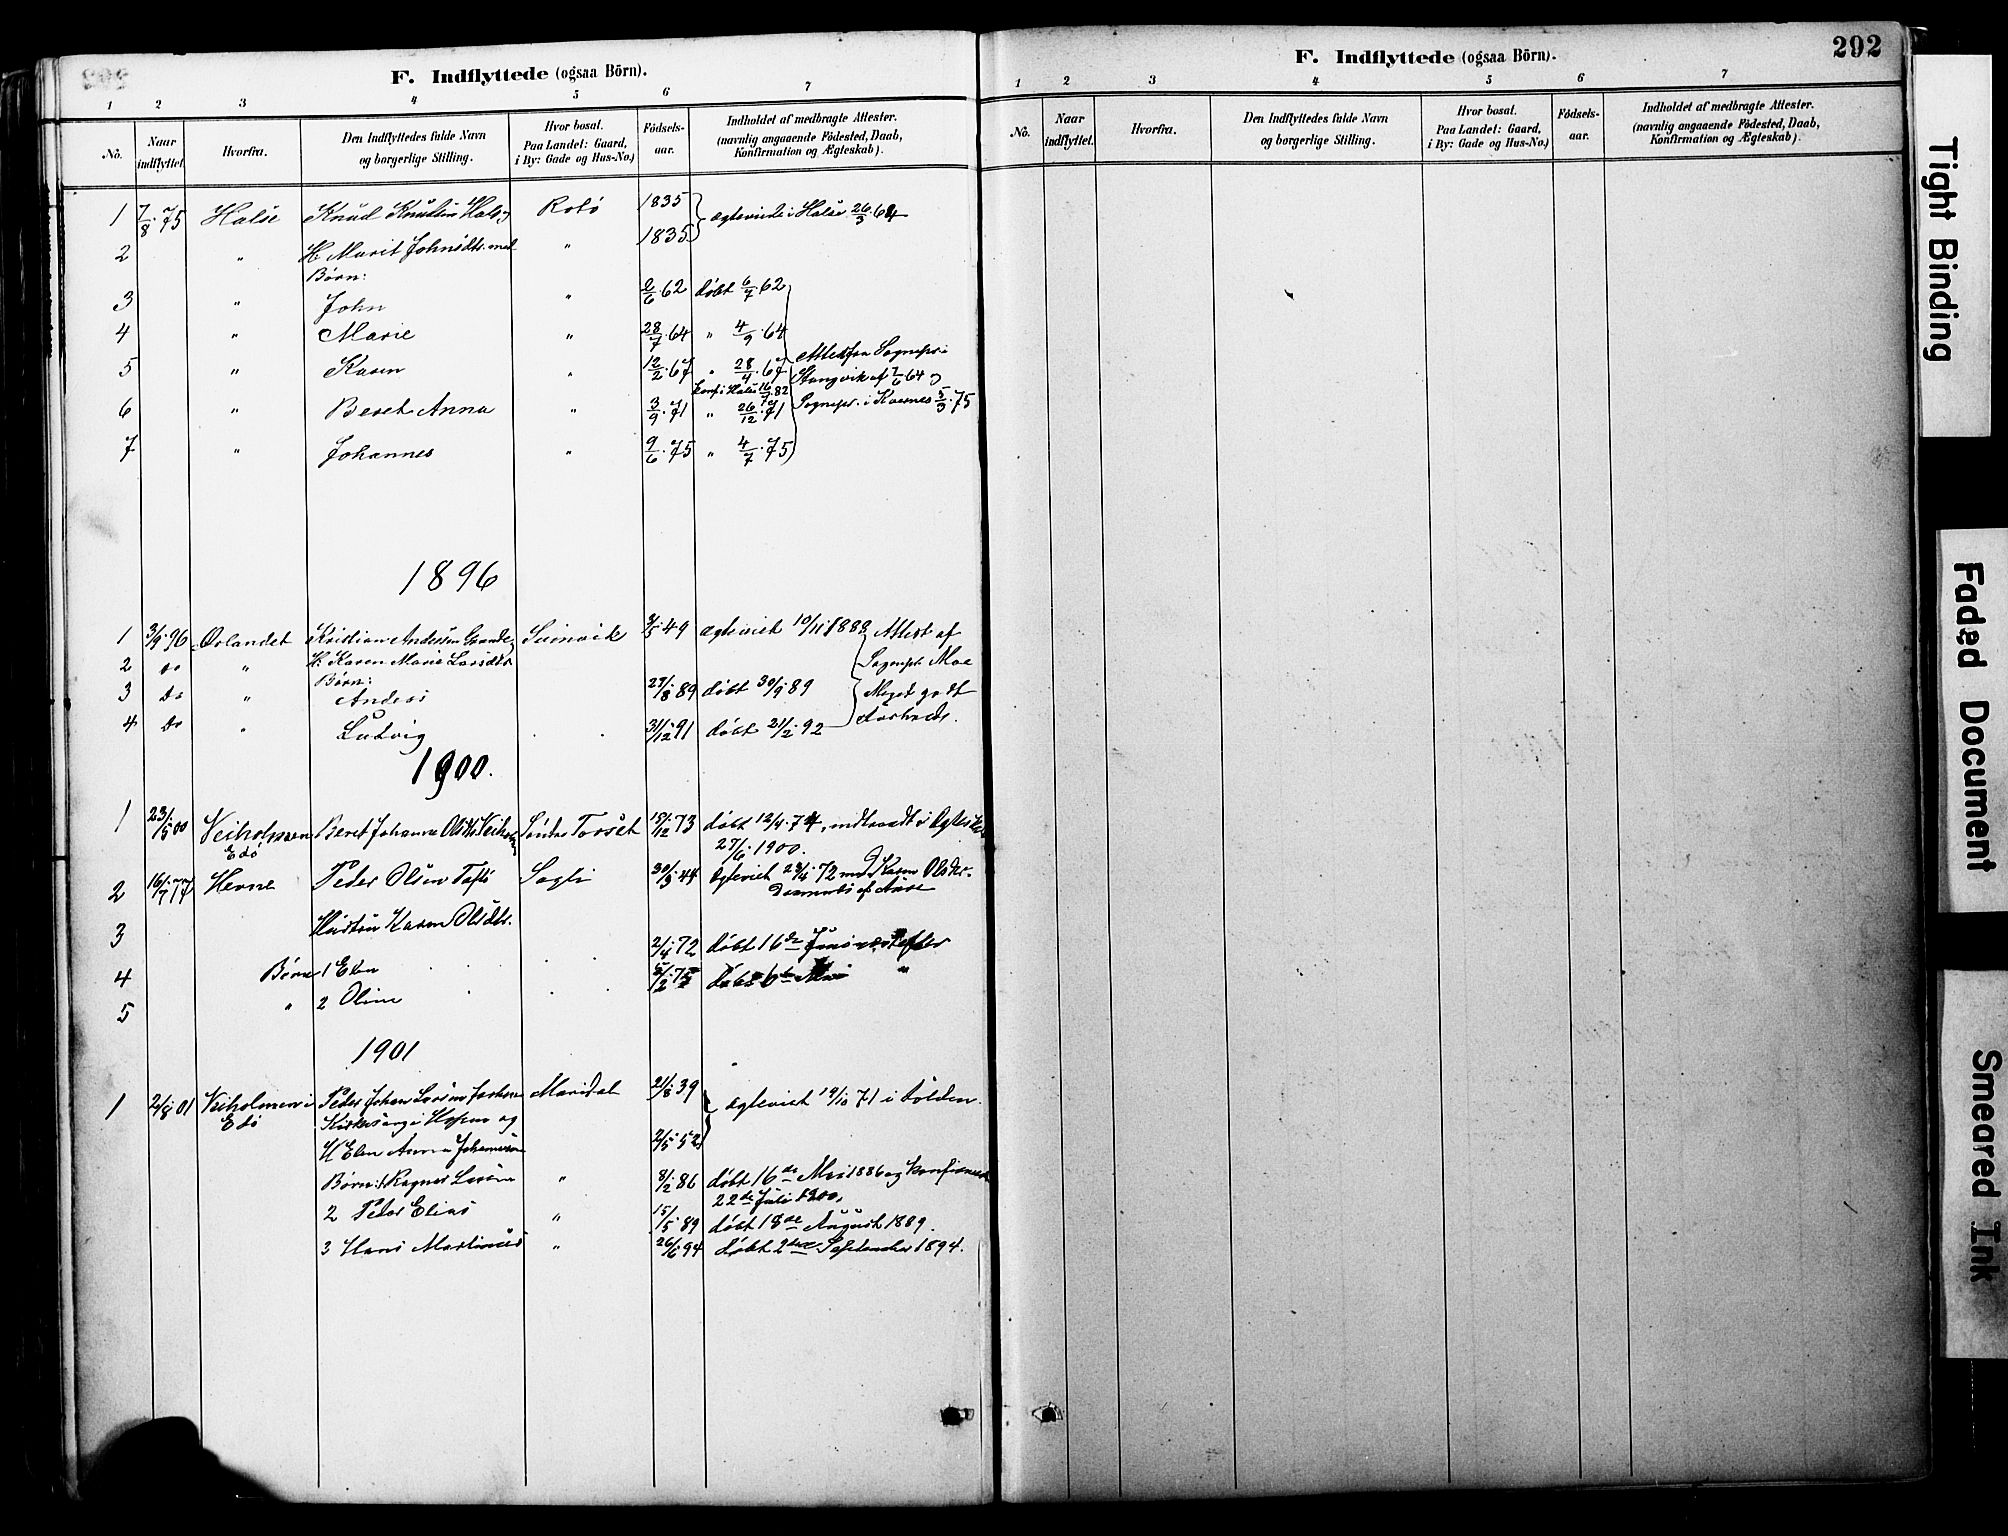 F. Indflyttede (ogsaa Börn).
1 2 3 4 5 6 7
No. Naar indflyttet. Hvorfra. Den Indflyttedes fulde Navn og borgerlige Stilling. Hvor bosat. Paa Landet: Gaard, i By: Gade og Hus-No.) Födsels-aar. Indholdet af medbragte Attester. (navnlig angaaende Födested, Daab, Konfirmation og Ægteskab).
1 7/8 75 Halse Knud Knudsen Halse Roto 1835 ægteviede i Halse 26/3 64
2 " H. Marit Johnsdtr. med " 1835
Børn:
3 " John " 2/6 62 døbt 6/7 62
4 " Marie " 28/7 64 " 4/9 64
5 " Karen " 12/2 67 " 28/4 67 Attest fra Sognepr. i
Stangvik af 7/6 64 og
Konf. i Halse 82
6 " Beret Anna " 3/9 71 " 26/12 71 Sognepr. i Kvernes 5/3 75
7 " Johannes " 9/6 75 " 4/7 75
1896
1 3/9 96 Ørlandet Kristian Andersen Grande Svinvik 3/5 49 ægteviet 10/11 1888 Attest af
2 do " H. Karen Marie Larsdtr Sognepr. Moe
Børn:
3 Do " Anders 27/8 89 døbt 30/9 89 Meget godt
4 Do " Ludvig 31/12 91 døbt 21/2 92
1900.
1 23/5 00 Veiholmen Beret Johanna Olsdtr Veiholm Torset 15/12 73 døbt 12/4 74, indtraadt i Ægtesk.
Edø 27/6 1900.
2 16/7 Hevne Peder Olsen Sagli 30/3 44 Ægteviet 23/4 72 med Karen Olsdtr.
3 Hustru Karen Olsdtr.
4 Børn 1 Elen 2/4 72 døbt 16de Juni næstefter
5 " 2 Oline døbt 6te Mai "
1901
1 2/8 01 Veiholmen i Peder Johan Larsen Maridal 21/8 39 ægteviet 19/10 71 i
Edø Kirkesanger i Hopen og
H Elen Anna Johannesen 2/5 52
Børn: 1 Ragner Larsen " 8/2 86 døbt 16de Mai 1886 og konfirmeret
22de Juli 1900.
2 Peder Elias " 15/5 89 døbt 18de August 1889.
3 Hans Martinus " 26/6 94 døbt 2den September 1894.
292
F. Indflyttede (ogsaa Börn).
1 2 3 4 5 6 7
No. Naar indflyttet. Hvorfra. Den Indflyttedes fulde Navn og borgerlige Stilling. Hvor bosat. Paa Landet: Gaard, i By: Gade og Hus-No.) Födsels-aar. Indholdet af medbragte Attester. (navnlig angaaende Födested, Daab, Konfirmation og Ægteskab).
Tight Binding
Faded Document
Smeared Ink